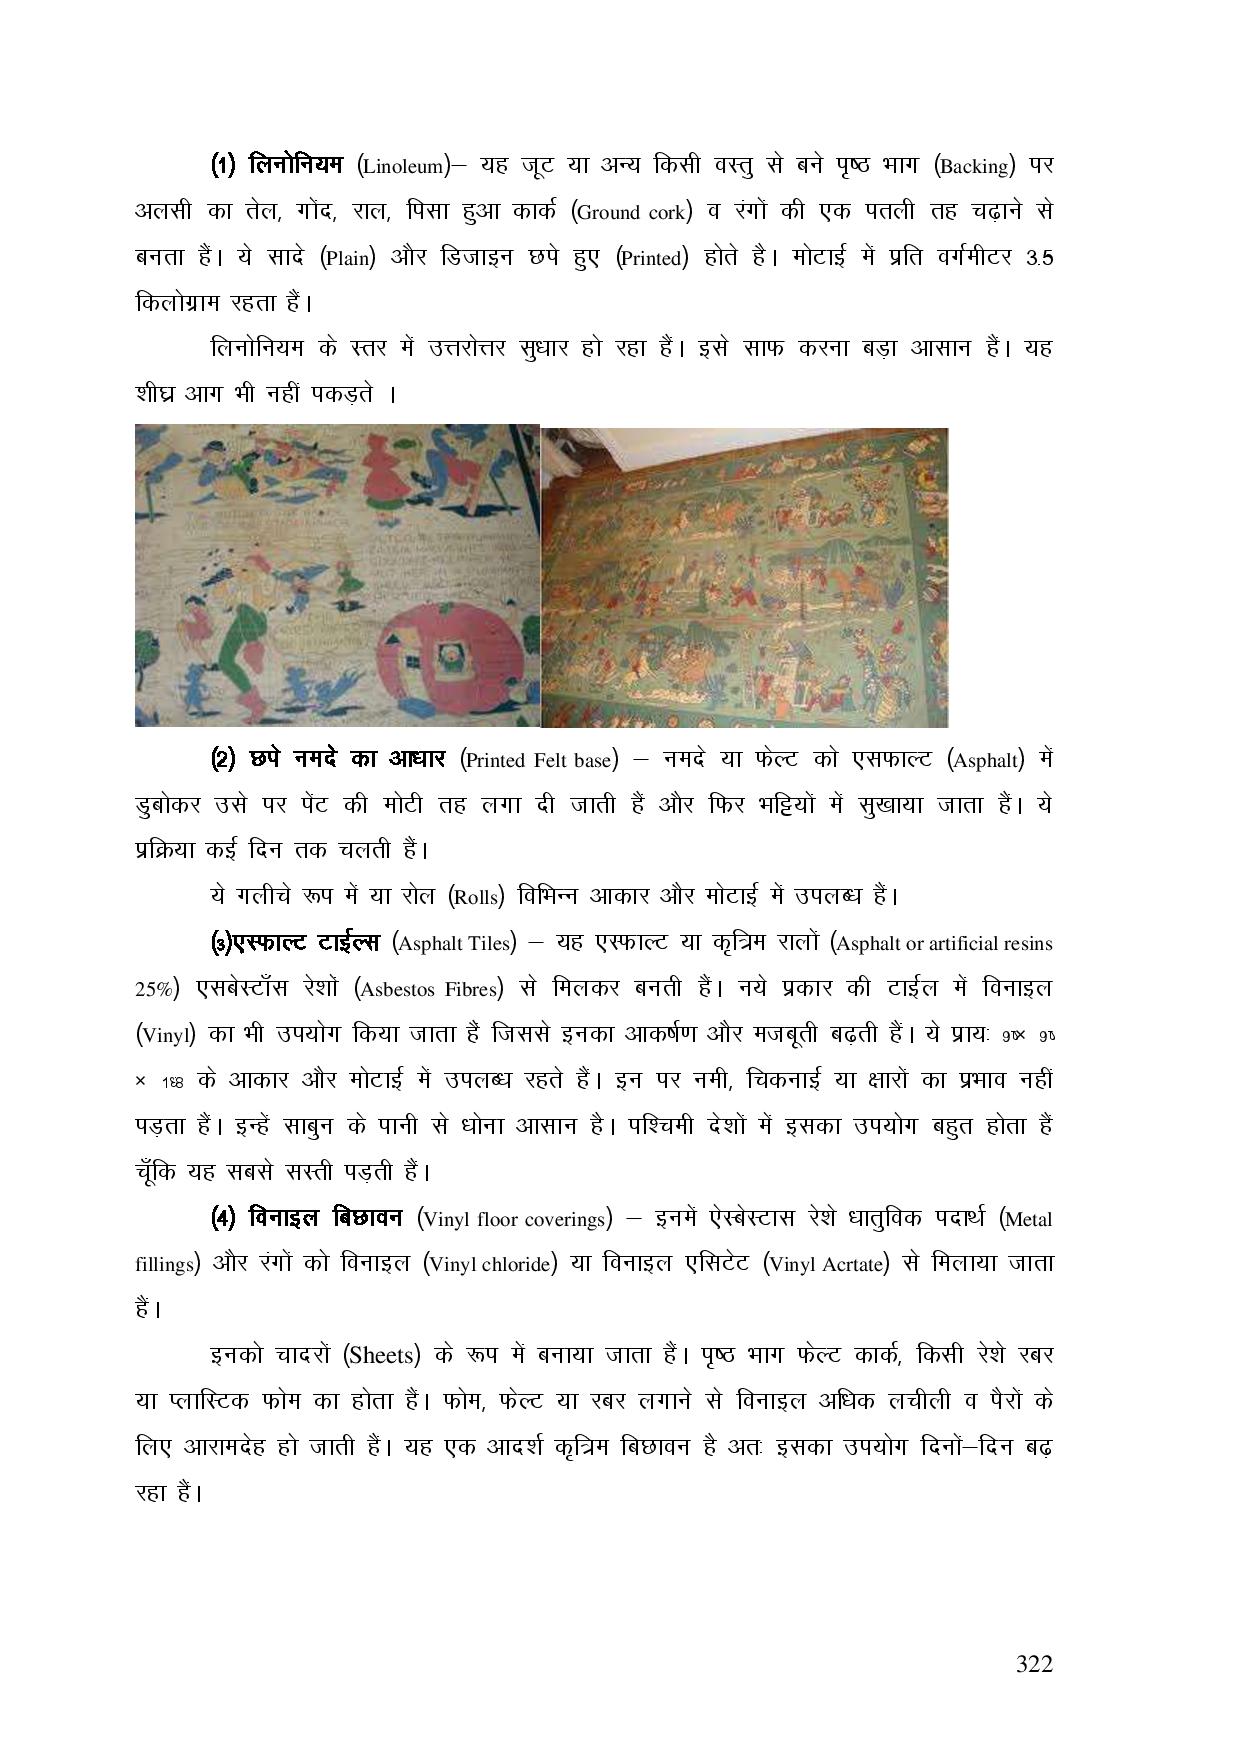 (1) लिनोनियम (Linoleum)– यह जूट या अन्य किसी वस्तु से बने पृष्ठ भाग (Backing) पर
अलसी का तेल, गोंद, राल, पिसा हुआ कार्क (Ground cork) व रंगों की एक पतली तह चढ़ाने से
बनता हैं। ये सादे (Plain) और डिजाइन छपे हुए (Printed) होते है। मोटाई में प्रति वर्गमीटर 3.5
किलोग्राम रहता हैं।
लिनोनियम के स्तर में उत्तरोत्तर सुधार हो रहा हैं। इसे साफ करना बड़ा आसान हैं। यह
शीघ्र आग भी नहीं पकड़ते ।
(2) छपे नमदे का आधार (Printed Felt base) – नमदे या फेल्ट को एसफाल्ट (Asphalt) में
डुबोकर उसे पर पेंट की मोटी तह लगा दी जाती हैं और फिर भट्टियों में सुखाया जाता हैं। ये
प्रक्रिया कई दिन तक चलती हैं।
ये गलीचे रूप में या रोल (Rolls) विभिन्न आकार और मोटाई में उपलब्ध हैं।
(3)एस्फाल्ट टाईल्स (Asphalt Tiles) – यह एस्फाल्ट या कृत्रिम रालों (Asphalt or artificial resins
25%) एसबेस्टाँस रेशों (Asbestos Fibres) से मिलकर बनती हैं। नये प्रकार की टाईल में विनाइल
(Vinyl) का भी उपयोग किया जाता हैं जिससे इनका आकर्षण और मजबूती बढ़ती हैं। ये प्रायः
× के आकार और मोटाई में उपलब्ध रहते हैं। इन पर नमी, चिकनाई या क्षारों का प्रभाव नहीं
पड़ता हैं। इन्हें साबुन के पानी से धोना आसान है। पश्चिमी देशों में इसका उपयोग बहुत होता हैं
चूँकि यह सबसे सस्ती पड़ती हैं।
(4) विनाइल बिछावन (Vinyl floor coverings) – इनमें ऐस्बेस्टास रेशे धातुविक पदार्थ (Metal
fillings) और रंगों को विनाइल (Vinyl chloride) या विनाइल एसिटेट (Vinyl Acrtate) से मिलाया जाता
हैं।
इनको चादरों (Sheets) के रूप में बनाया जाता हैं। पृष्ठ भाग फेल्ट कार्क, किसी रेशे रबर
या प्लास्टिक फोम का होता हैं। फोम, फेल्ट या रबर लगाने से विनाइल अधिक लचीली व पैरों के
लिए आरामदेह हो जाती हैं। यह एक आदर्श कृत्रिम बिछावन है अतः इसका उपयोग दिनों–दिन बढ़
रहा हैं।
322